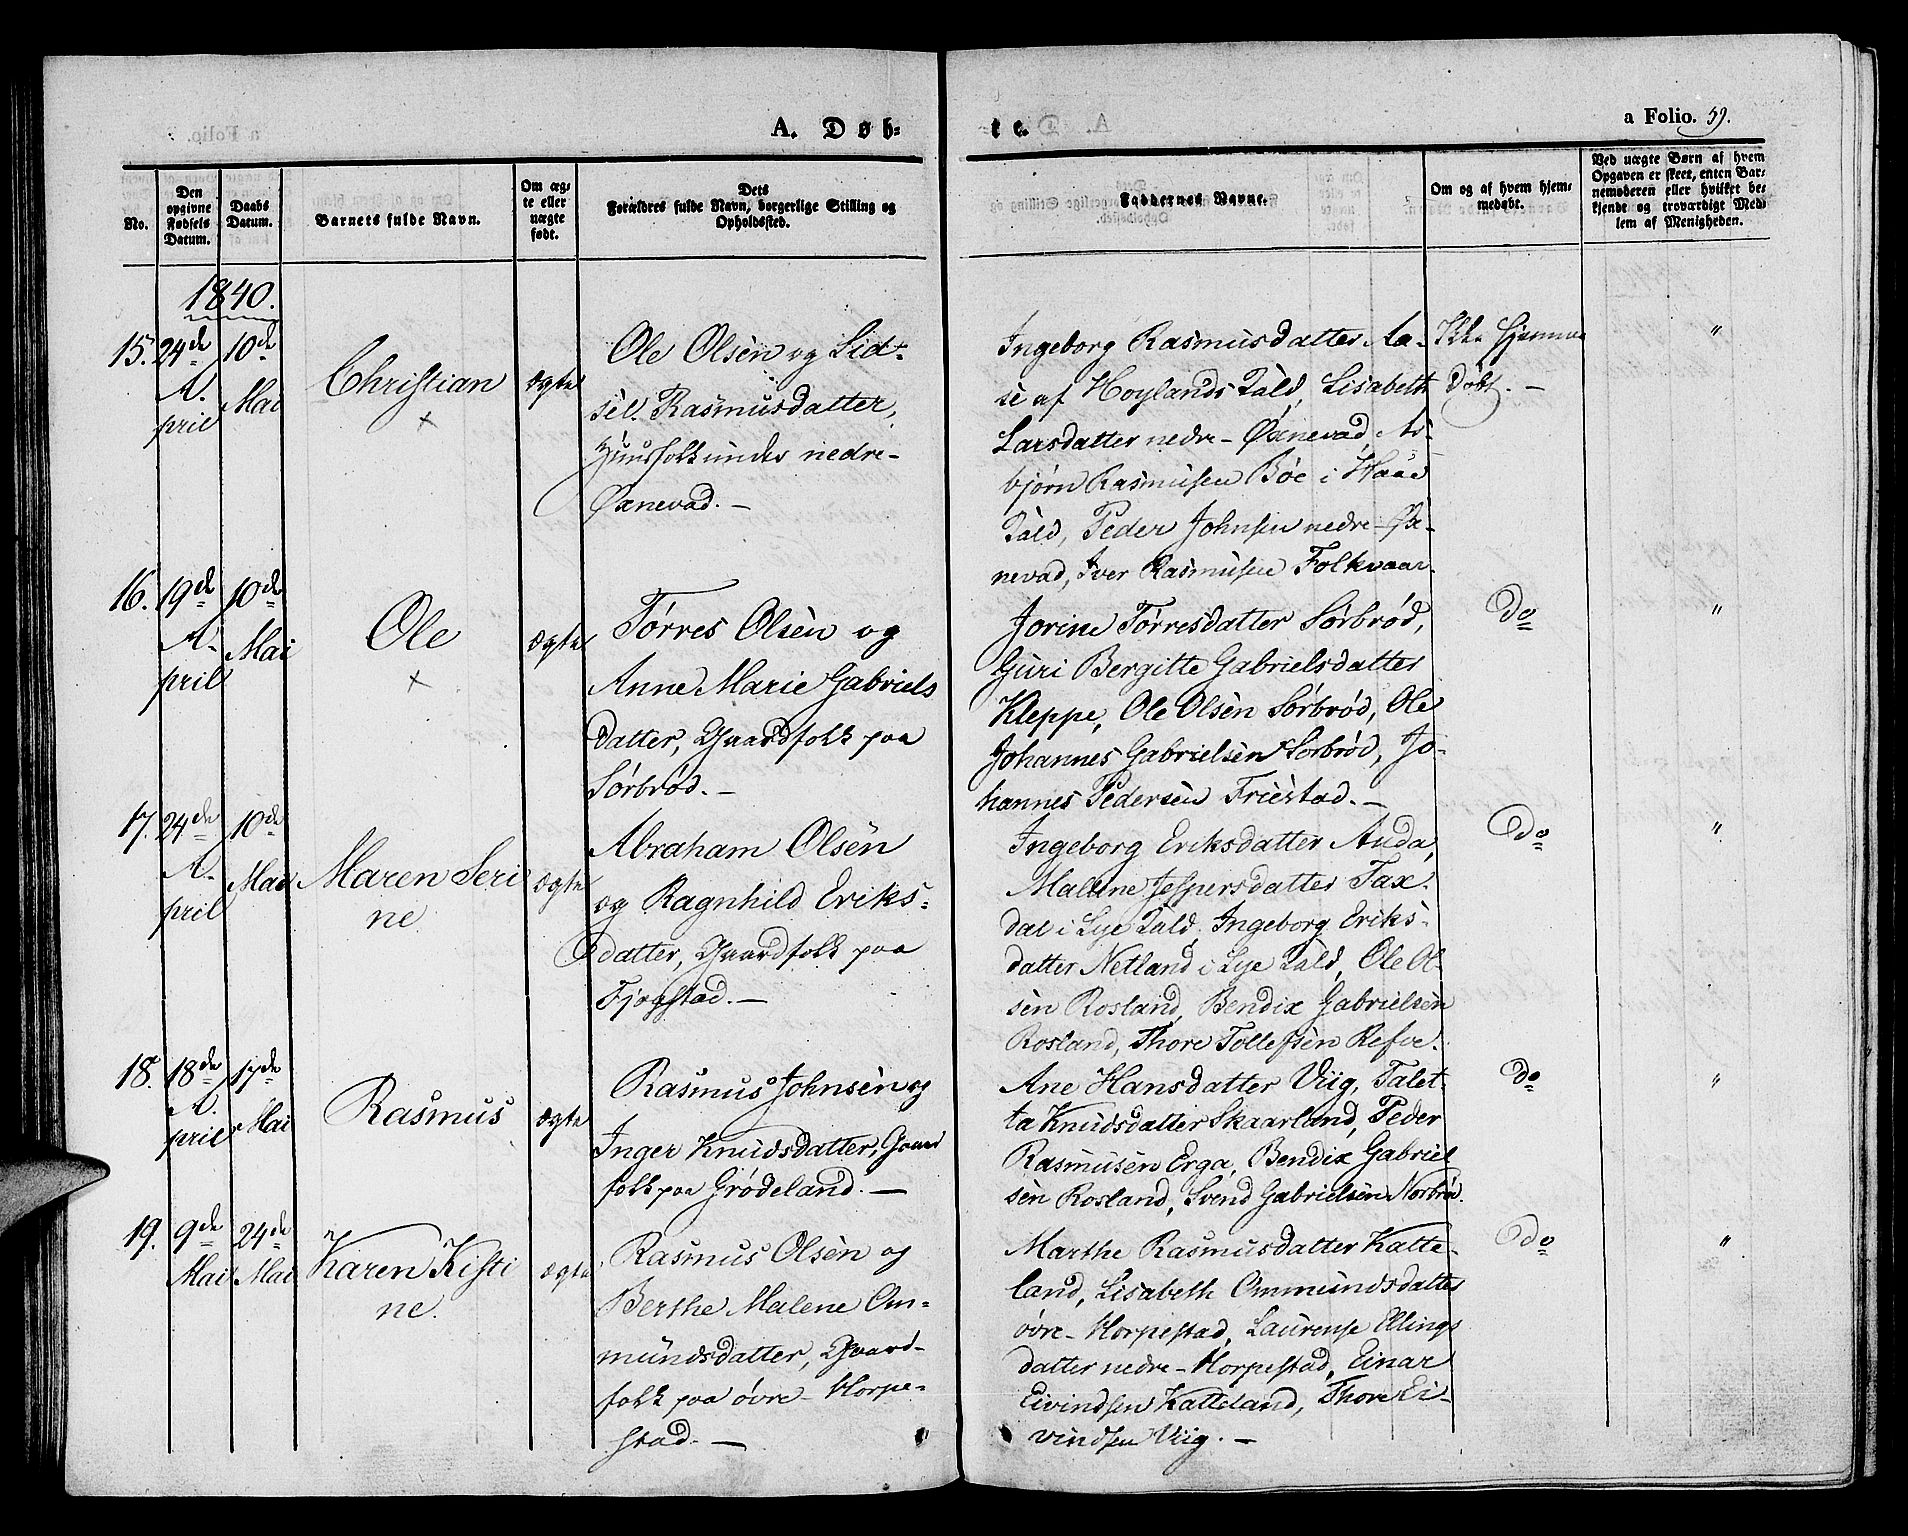 A. Døb-
te.
a Folio. 59.
No.
Den opgivne Fødsels Datum.
Daabs Datum.
Barnets fulde Navn.
Om ægte eller uægte født.
Dets Forældres fulde Navn, borgerlige Stilling og Opholdssted.
Faddernes Navne.
Om og af hvem hjemmedøbt.
Ved uægte Børn af hvem
Opgaven er skeet, enten Bar-
nemoderen eller hvilket be-
kjendt og troværdigt Med-
lem af Menigheden.
1840.
15. 24de A-pril
10de Mai
Christian
×
ægte
Ole Olsen og Sid-
sel Rasmusdatter,
Huusfolk under nedre-
Øxnevad. —
Ingeborg Rasmusdatter Aa-
se af Hoylands Tald, Lisabeth
Larsdatter nedre-Øxnevad, As-
bjørn Rasmusen Bøe i Haae
Tald, Peder Johnsen nedre-Øx-
nevad, Iver Rasmusen Folkvaar.
Ikke Hjemme
døbt. —
"
16. 19de A-pril
10de Mai
Ole
×
ægte
Tørres Olsen og
Anne Marie Gabriels
datter, Gaardfolk paa
Sørbrød. —
Jorine Tørresdatter Sørbrød,
Guri Bergitte Gabrielsdatter
Kleppe, Ole Olsen Sørbrød, Ole
Johannes Gabrielsen Sørbrød, Jo-
hannes Pedersen Friestad. —
Do
"
17. 24de A-pril
10de Mai
Maren Seri
ne
ægte
Abraham Olsen
og Ragnhild Eriks-
datter, Gaardfolk paa
Fjogstad. —
Ingeborg Eriksdatter Auda,
Malene Jespersdatter Tax-
dal i Lye Tald, Ingeborg Eriks-
datter Netland i Lye Tald, Ole Ol-
sen Rosland, Bendix Gabrielsen
Rosland, Thore Tollefsen Refve.
Do
"
18. 18de A-pril
17de Mai
Rasmus
ægte
Rasmus Johnsen og
Inger Knudsdatter, Gaard
folk paa Grødeland. —
Ane Hansdatter Viig, Talet-
ta Knudsdatter Skaarland, Peder
Rasmusen Erga, Bendix Gabriel
sen Rosland, Svend Gabrielsen Norbrø.
do
"
19. 9de Mai
24de Mai
Karen Kisti
ne.
ægte
Rasmus Olsen og
Berthe Malene Om-
mundsdatter, Gaard-
folk paa øvre-Horpe-
stad. —
Marthe Rasmusdatter Katte-
land, Lisabeth Ommundsdatter
øvre-Horpestad, Laurense Ellings
datter nedre-Horpestad, Einar
Eivindsen Katteland, Thore Ei-
vindsen Viig. —
do
"